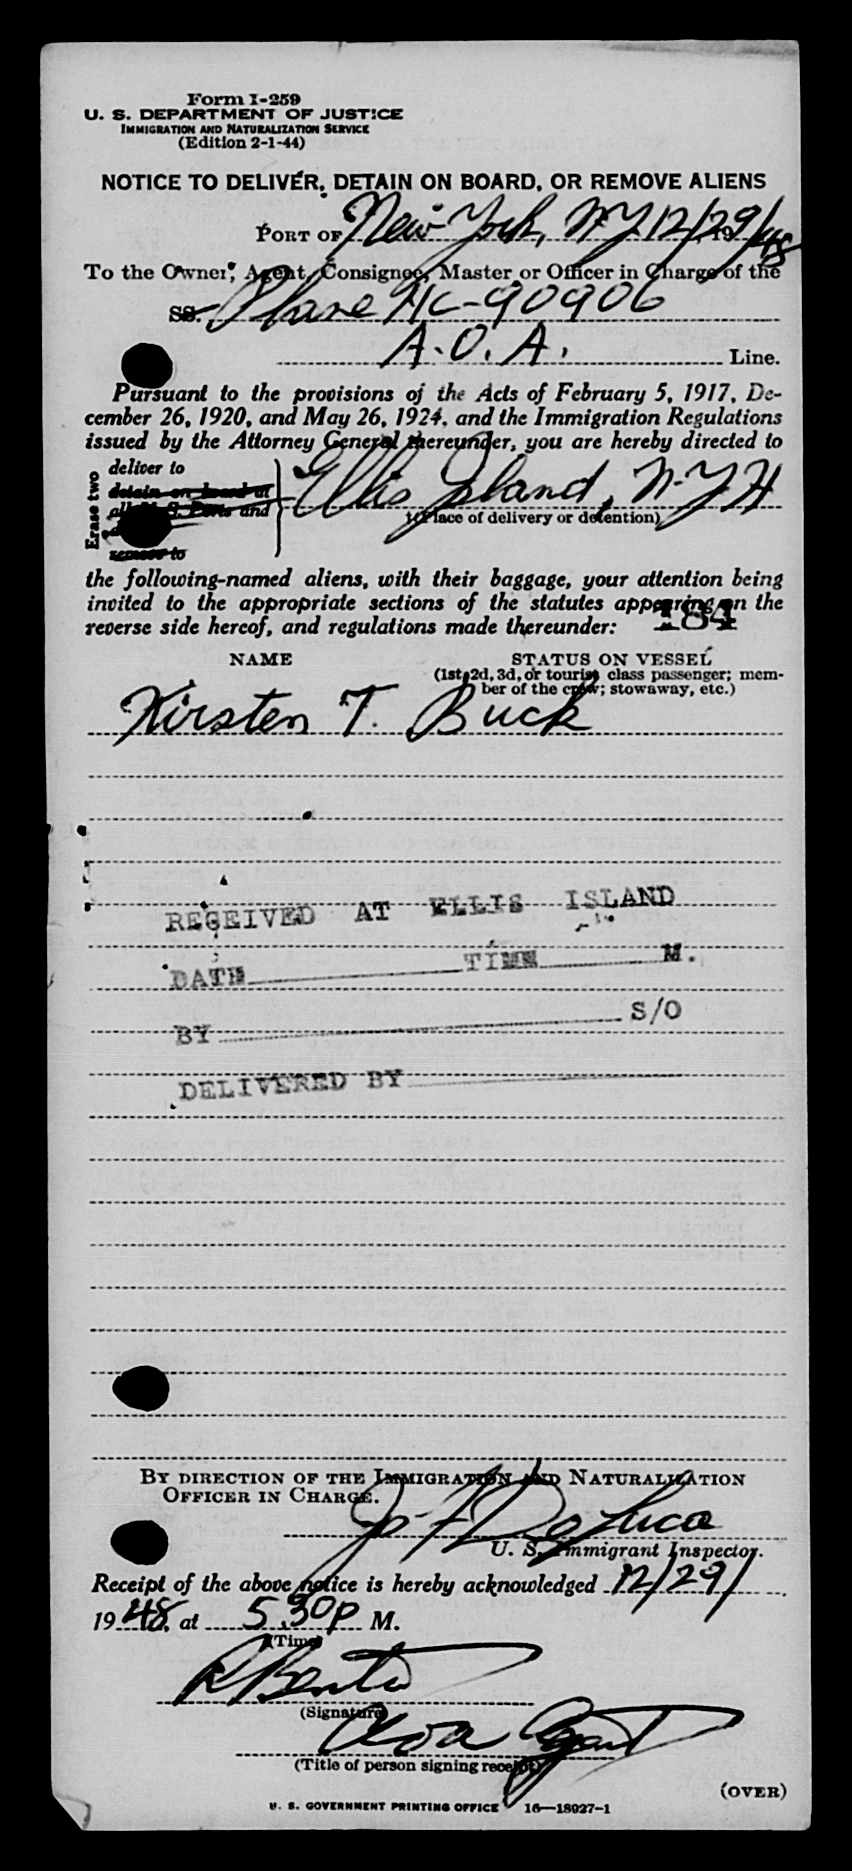 Form I-259
U. S. DEPARTMENT OF JUSTICE
IMMIGRATION AND NATURALIZATION SERVICE
(Edition 2-1-44)
NOTICE TO DELIVER, DETAIN ON BOARD, OR REMOVE ALIENS
PORT OF New York, NY 12/29/48 19
To the Owner, Agent, Consignee, Master or Officer in Charge of the
SS. Plane NC-90906
A.O.A. Line.
Pursuant to the provisions of the Acts of February 5, 1917, De-
cember 26, 1920, and May 26, 1924, and the Immigration Regulations
issued by the Attorney General thereunder, you are hereby directed to
Erase two
deliver to
detain on board at
all U. S. Ports and
remove to
Ellis Island, N.Y.H
(Place of delivery or detention)
the following-named aliens, with their baggage, your attention being
invited to the appropriate sections of the statutes appearing on the
reverse side hereof, and regulations made thereunder: 184
NAME STATUS ON VESSEL
(1st, 2d, 3d, or tourist class passenger; mem-
ber of the crew; stowaway, etc.)
Kirsten T. Buck
RECEIVED AT ELLIS ISLAND
DATE TIME M.
BY S/O
DELIVERED BY
BY DIRECTION OF THE IMMIGRATION AND NATURALIZATION
OFFICER IN CHARGE.
U. S. Immigrant Inspector.
Receipt of the above notice is hereby acknowledged 12/29/
1948, at 5.30 P M.
(Time)
(Signature)
AOA Agent
(Title of person signing receipt)
(OVER)
U. S. GOVERNMENT PRINTING OFFICE 16—18027-1